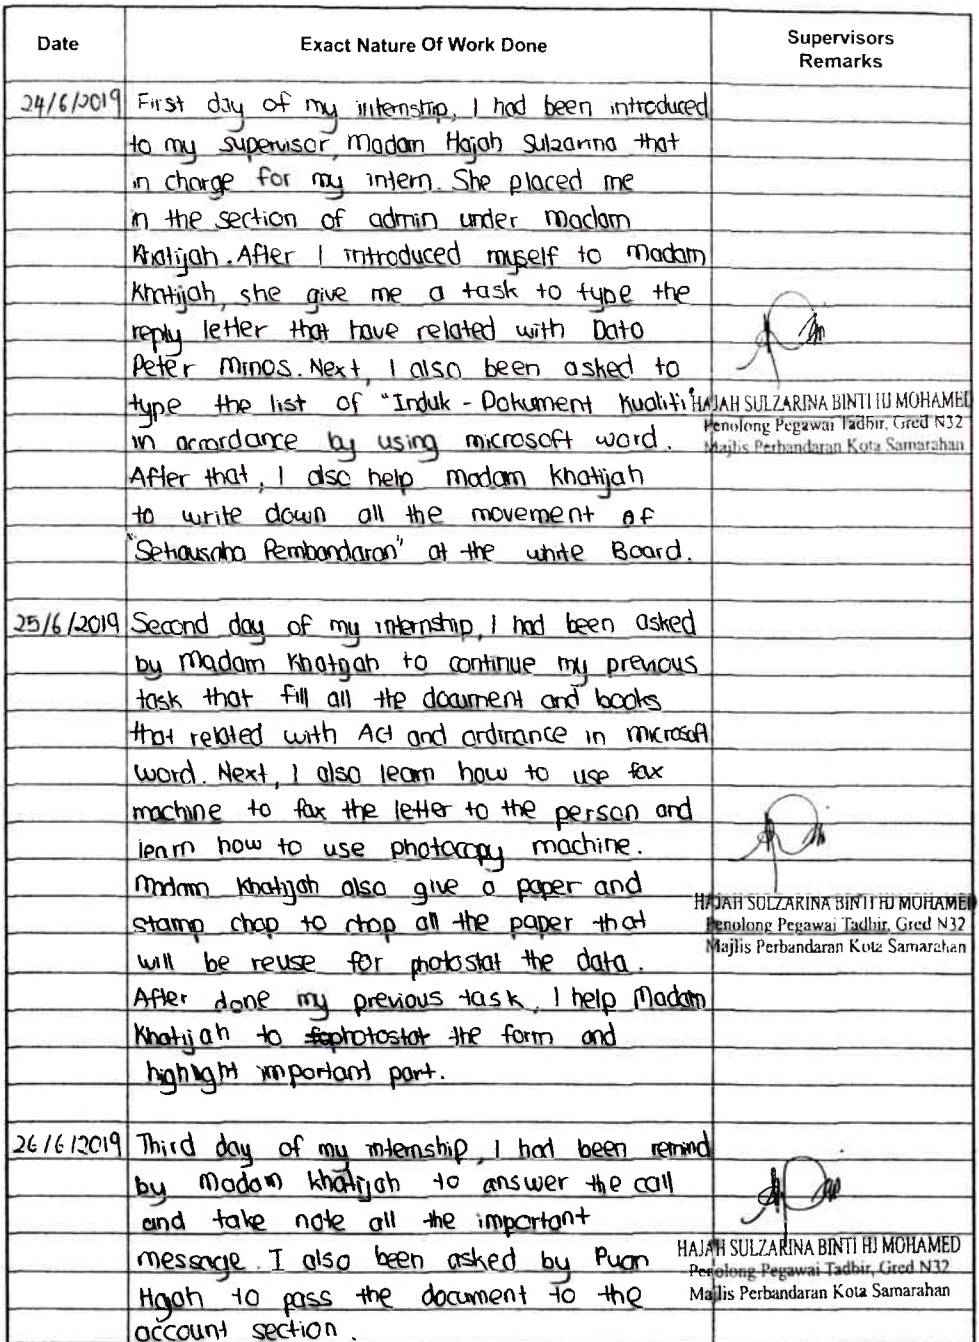 Date Exact Nature Of Work Done Supervisors Remarks
24/6/2019 First day of my internship, I had been introduced
to my supervisor, Madam Hajah Sulzarina that
in charge for my intern. She placed me
in the section of admin under madam
Khatijah. After I introduced myself to Madam
Khatijah, she give me a task to type the
reply letter that have related with Dato
Peter Minos. Next, I also been asked to
type the list of "Induk - Dokument Kualiti"
in accordance by using microsoft word.
After that, I also help madam Khatijah
to write down all the movement of
"Setiausaha Pembandaran" at the white Board.
HAJAH SULZARINA BINTI HJ MOHAMED
Penolong Pegawai Tadbir, Gred N32
Majlis Perbandaran Kota Samarahan
25/6/2019 Second day of my internship, I had been asked
by Madam Khatijah to continue my previous
task that fill all the document and books
that related with Act and ordinance in microsoft
word. Next, I also learn how to use fax
machine to fax the letter to the person and
learn how to use photocopy machine.
Madam Khatijah also give a paper and
stamp chop to chop all the paper that
will be reuse for photostat the data.
After done my previous task, I help Madam
Khatijah to photostat the form and
highlight important part.
HAJAH SULZARINA BINTI HJ MOHAMED
Penolong Pegawai Tadbir, Gred N32
Majlis Perbandaran Kota Samarahan
26/6/2019 Third day of my internship, I had been remind
by madam khatijah to answer the call
and take note all the important
message. I also been asked by Puan
Hajah to pass the document to the
account section.
HAJAH SULZARINA BINTI HJ MOHAMED
Penolong Pegawai Tadbir, Gred N32
Majlis Perbandaran Kota Samarahan